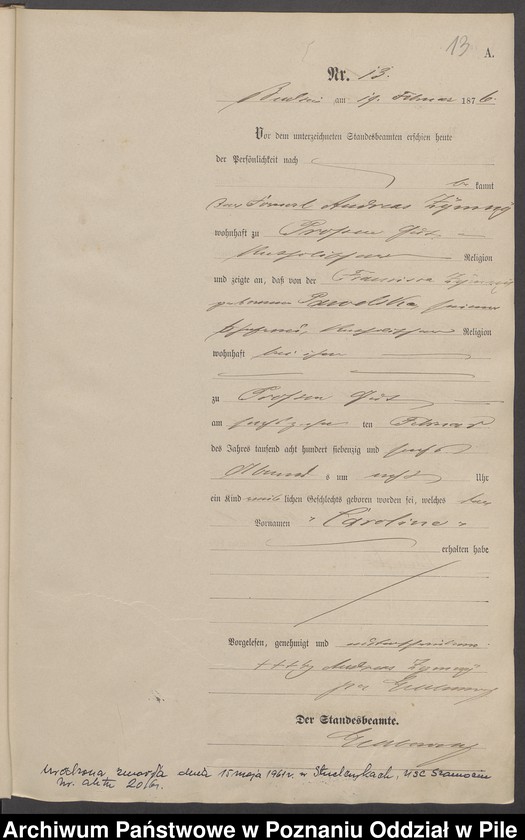 13
A.
Nr. 13.
am 19. Februar 1876.
Vor dem unterzeichneten Standesbeamten erschien heute
der Persönlichkeit nach
be kannt
Andreas
wohnhaft zu Gut
Katholischer Religion
und zeigte an, daß von der Francisca
geborenen Pawolska seiner
Ehefrau, katholischer Religion
wohnhaft bei ihm
zu Gut
am sechszehn ten Februar
des Jahres tausend acht hundert siebenzig und sechs
Abend s um acht Uhr
ein Kind weib lichen Geschlechts geboren worden sei, welches den
Vornamen " Caroline "
erhalten habe
Vorgelesen, genehmigt und unterschrieben
+++ Andreas
Der Standesbeamte.
urodzona zmarła dnia 15 maja 1961 r. w USC
Nr. aktu 20/61.
Archiwum Państwowe w Poznaniu Oddział w Pile